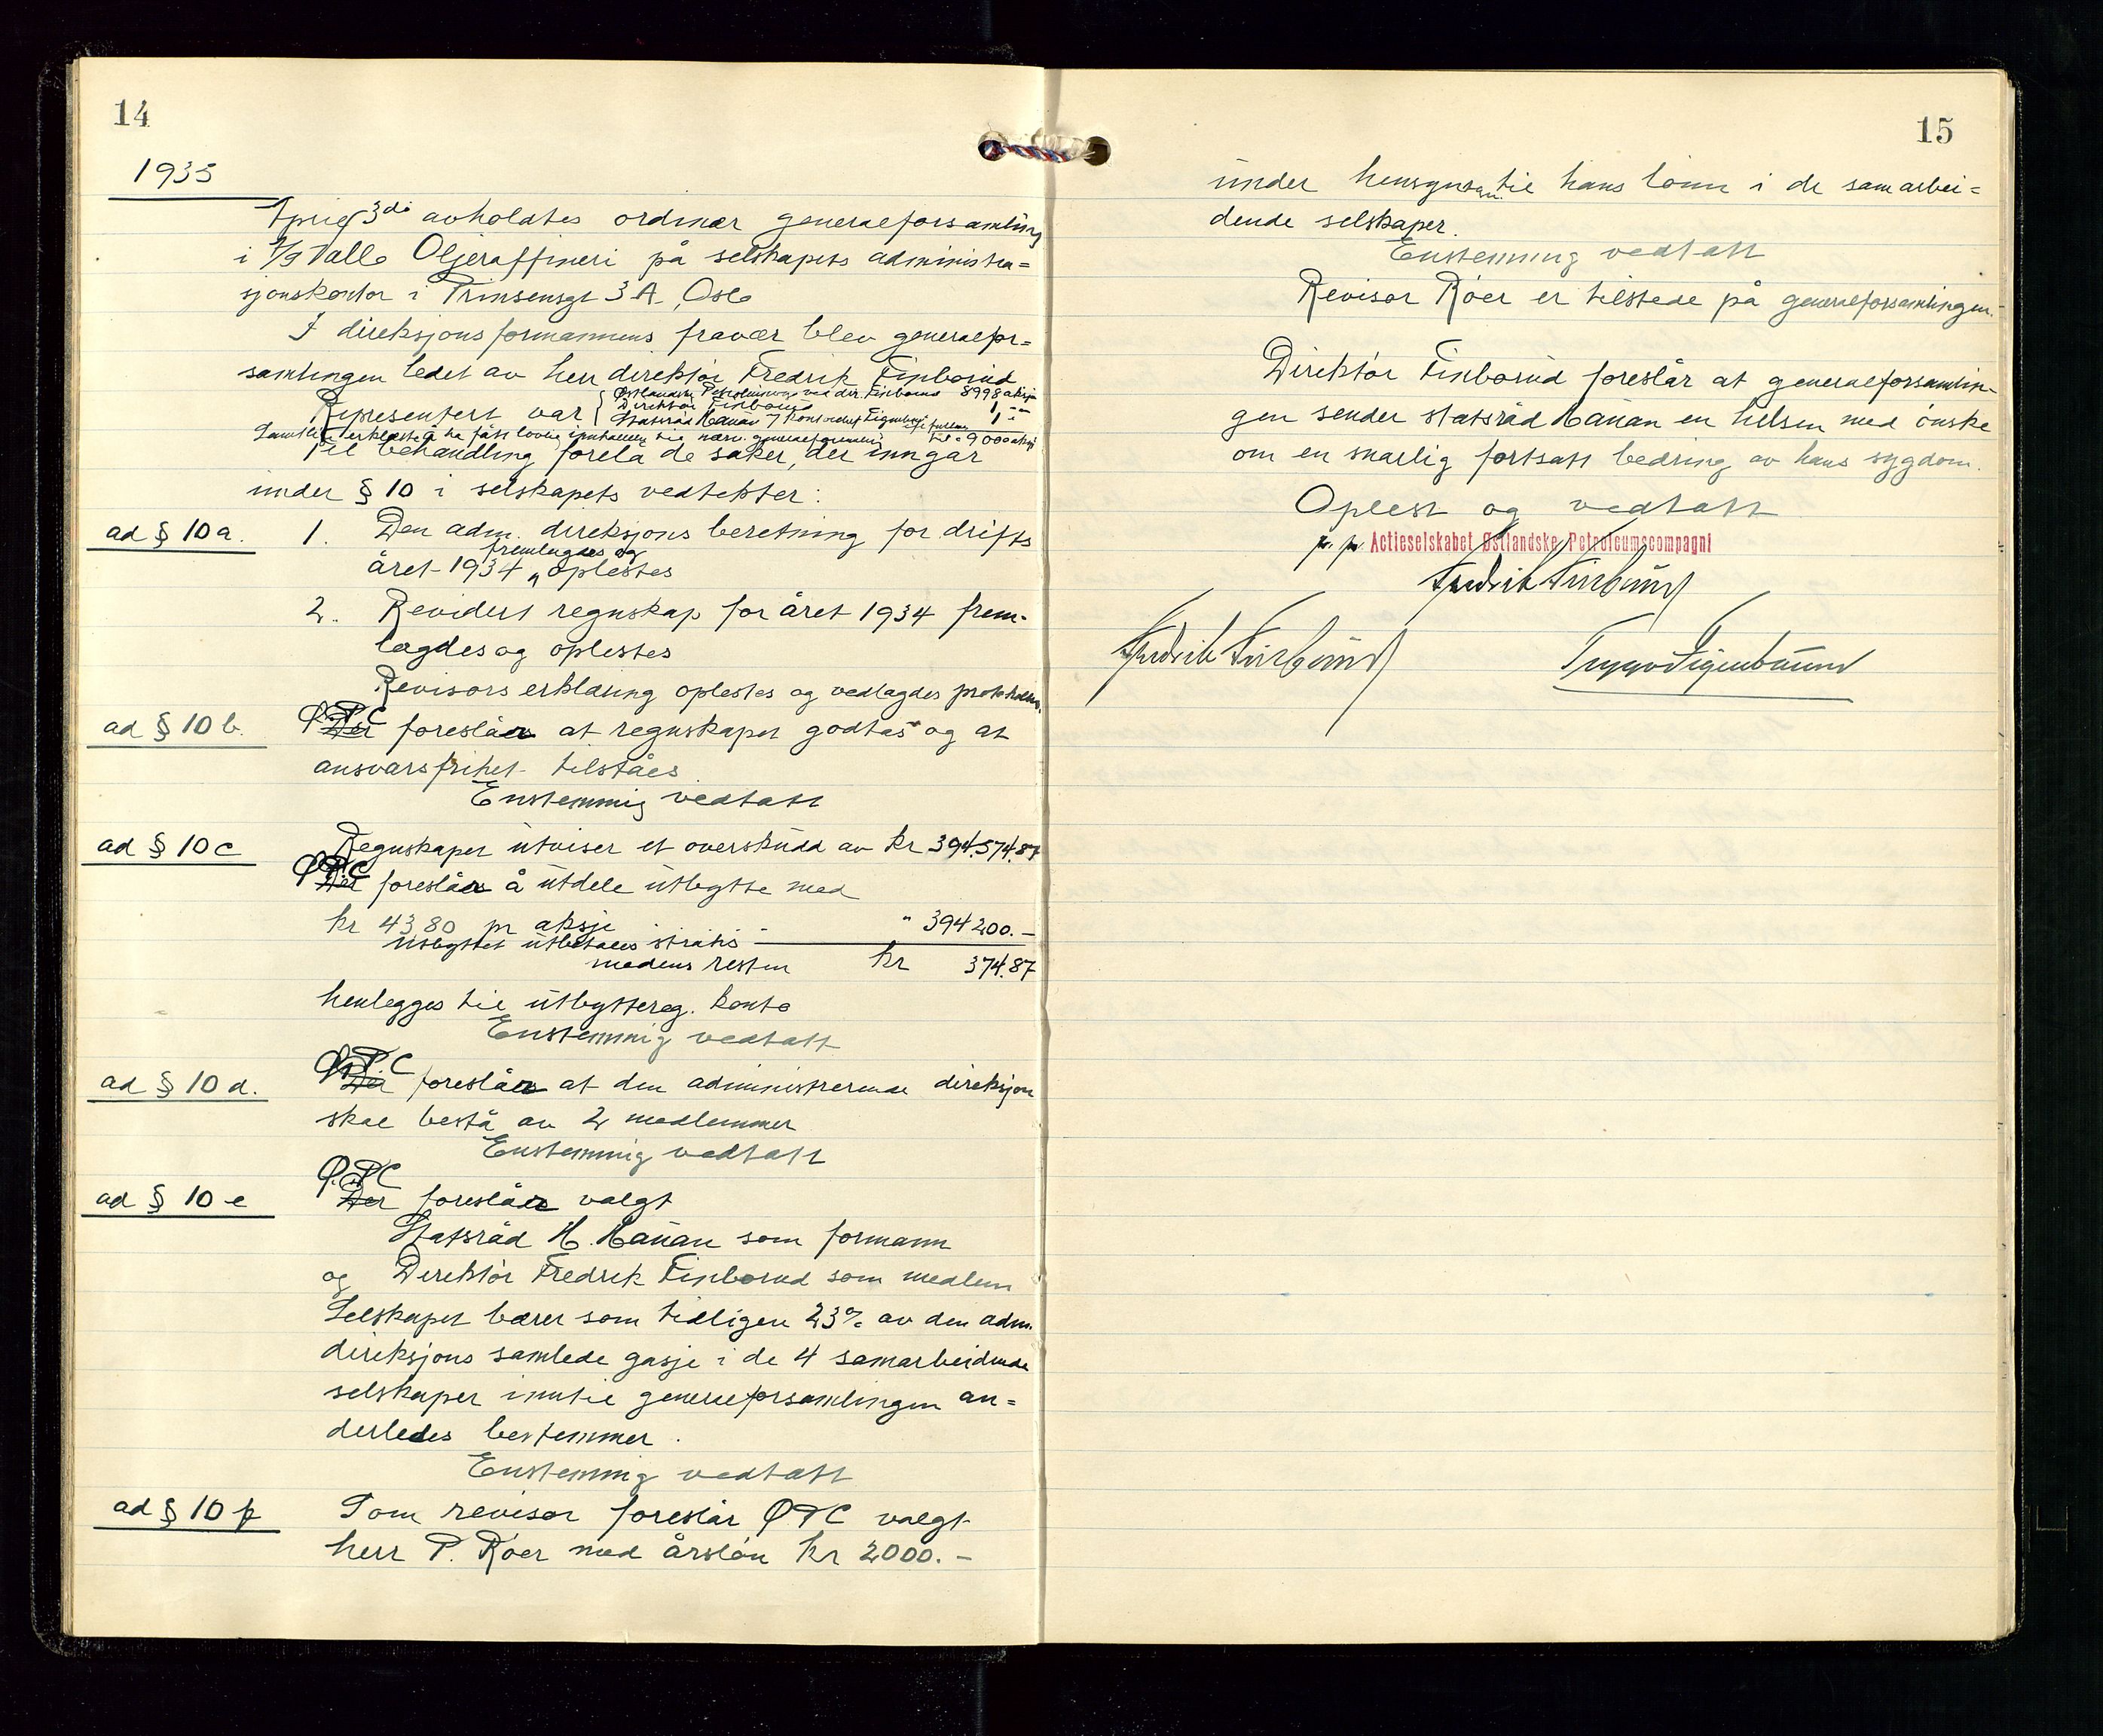 14
1935
April 3di avholdtes ordinær generalforsamling
i A/S Vallø Oljeraffineri på selskapets administra=
sjonskontor i Prinsensgt 3 A, Oslo
I direksjonsformannens fravær blev generalfor=
samlingen ledet av herr direktør Fredrik Finborud
Representert var { Østlandske Petroleumco ved dir. Finborud 8998 aksje
Direktør Finborud 1 "
Statsråd Hauan 1 "
erklærte å ha fått lovlig innkallelse til nærv. generalforsaml. 9000 aksj
Til behandling forelå de saker, der inngår
under § 10 i selskapets vedtekter:
ad § 10 a. 1. Den adm. direksjons beretning for drifts
fremlagdes og
året 1934 oplestes
2. Revidert regnskap for året 1934 frem-
lagdes og oplestes
Revisors erklæring oplestes og vedlagdes protokollen.
ad § 10 b. ØPC Der foreslåes at regnskapet godtas og at
ansvarsfrihet tilståes.
Enstemmig vedtatt
ad § 10 c Regnskapet utviser et overskudd av kr 394.574.87
ØPC Der foreslåes å utdele utbytte med
kr 43,80 pr aksje " 394 200.–
Utbyttet utbetales straks –
medens resten kr 374.87
henlegges til utbyttereg. konto
Enstemmig vedtatt
ad § 10 d. Ø.P.C Der foreslåes at den administrerende direksjon
skal bestå av 2 medlemmer
Enstemmig vedtatt
ad § 10 e Ø.P.C Der foreslåes valgt
Statsråd H. Hauan som formann
og Direktør Fredrik Finborud som medlem
Selskapet bærer som tidligere 23% av den adm.
direksjons samlede gasje i de 4 samarbeidende
selskaper inntil generalforsamlingen an=
derledes bestemmer.
Enstemmig vedtatt
ad § 10 f Som revisor foreslår ØPC valgt
herr P. Röer med årslön kr 2000.–
15
under hensyntagen til hans lönn i de samarbei=
dende selskaper.
Enstemmig vedtatt
Revisor Röer er tilstede på generalforsamlingen.
Direktör Finborud foreslår at generalforsamlin-
gen sender statsråd Hauan en hilsen med önske
om en snarlig fortsatt bedring av hans sygdom.
Oplest og vedtatt
pr. pr. Actieselskabet Østlandske Petroleumscompagni
Fredrik Finborud
Fredrik Finborud
Trygve Figenbaum